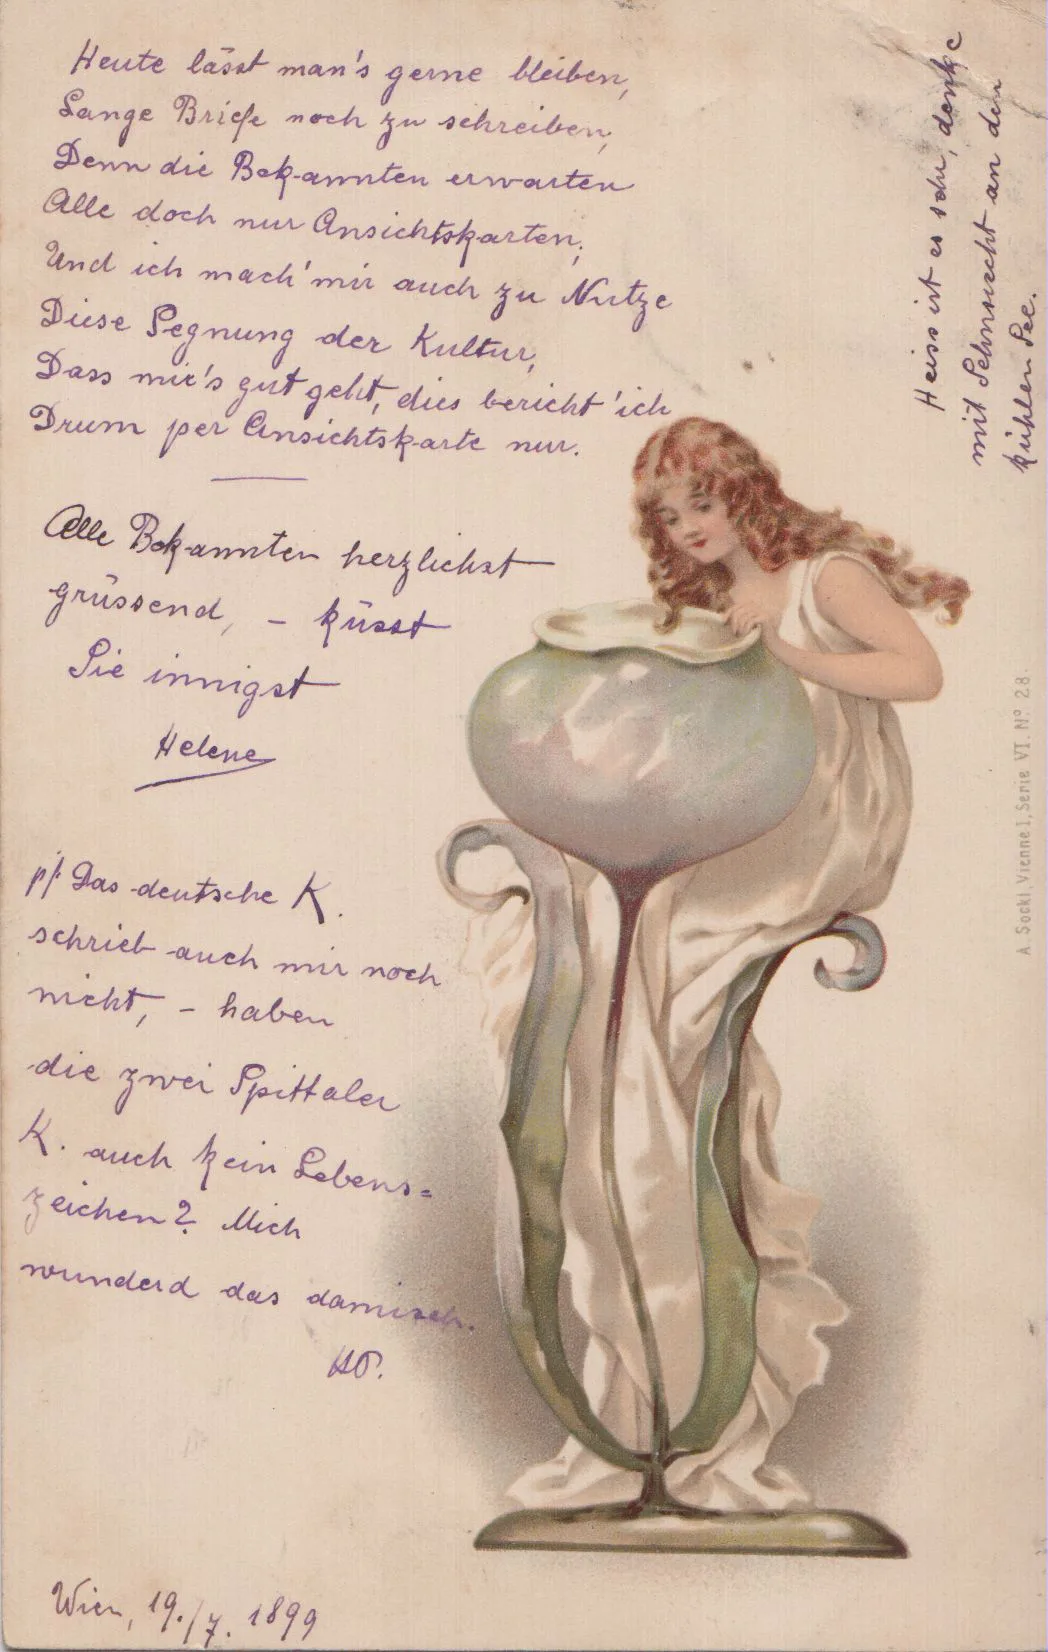 Heute lässt man's gerne bleiben,
Lange Briefe noch zu schreiben,
Denn die Bekannten erwarten
Alle doch nur Ansichtskarten;
Und ich mach' mir auch zu Nutze
Diese Segnung der Kultur,
Dass mir's gut geht, dies bericht' ich
Drum per Ansichtskarte nur.
Alle Bekannten herzlichst
grüssend, – küsst
Sie innigst
Helene
Das deutsche K.
schrieb auch mir noch
nicht, – haben
die zwei Spittaler
K. auch kein Lebens=
zeichen? Mich
wunderd das damisch.
Wien, 19./7. 1899
Heiss ist es sehr, denke
mit Sehnsucht an den
kühlen See.
A. Sockl, Vienne I, Serie VI. Nº 28.